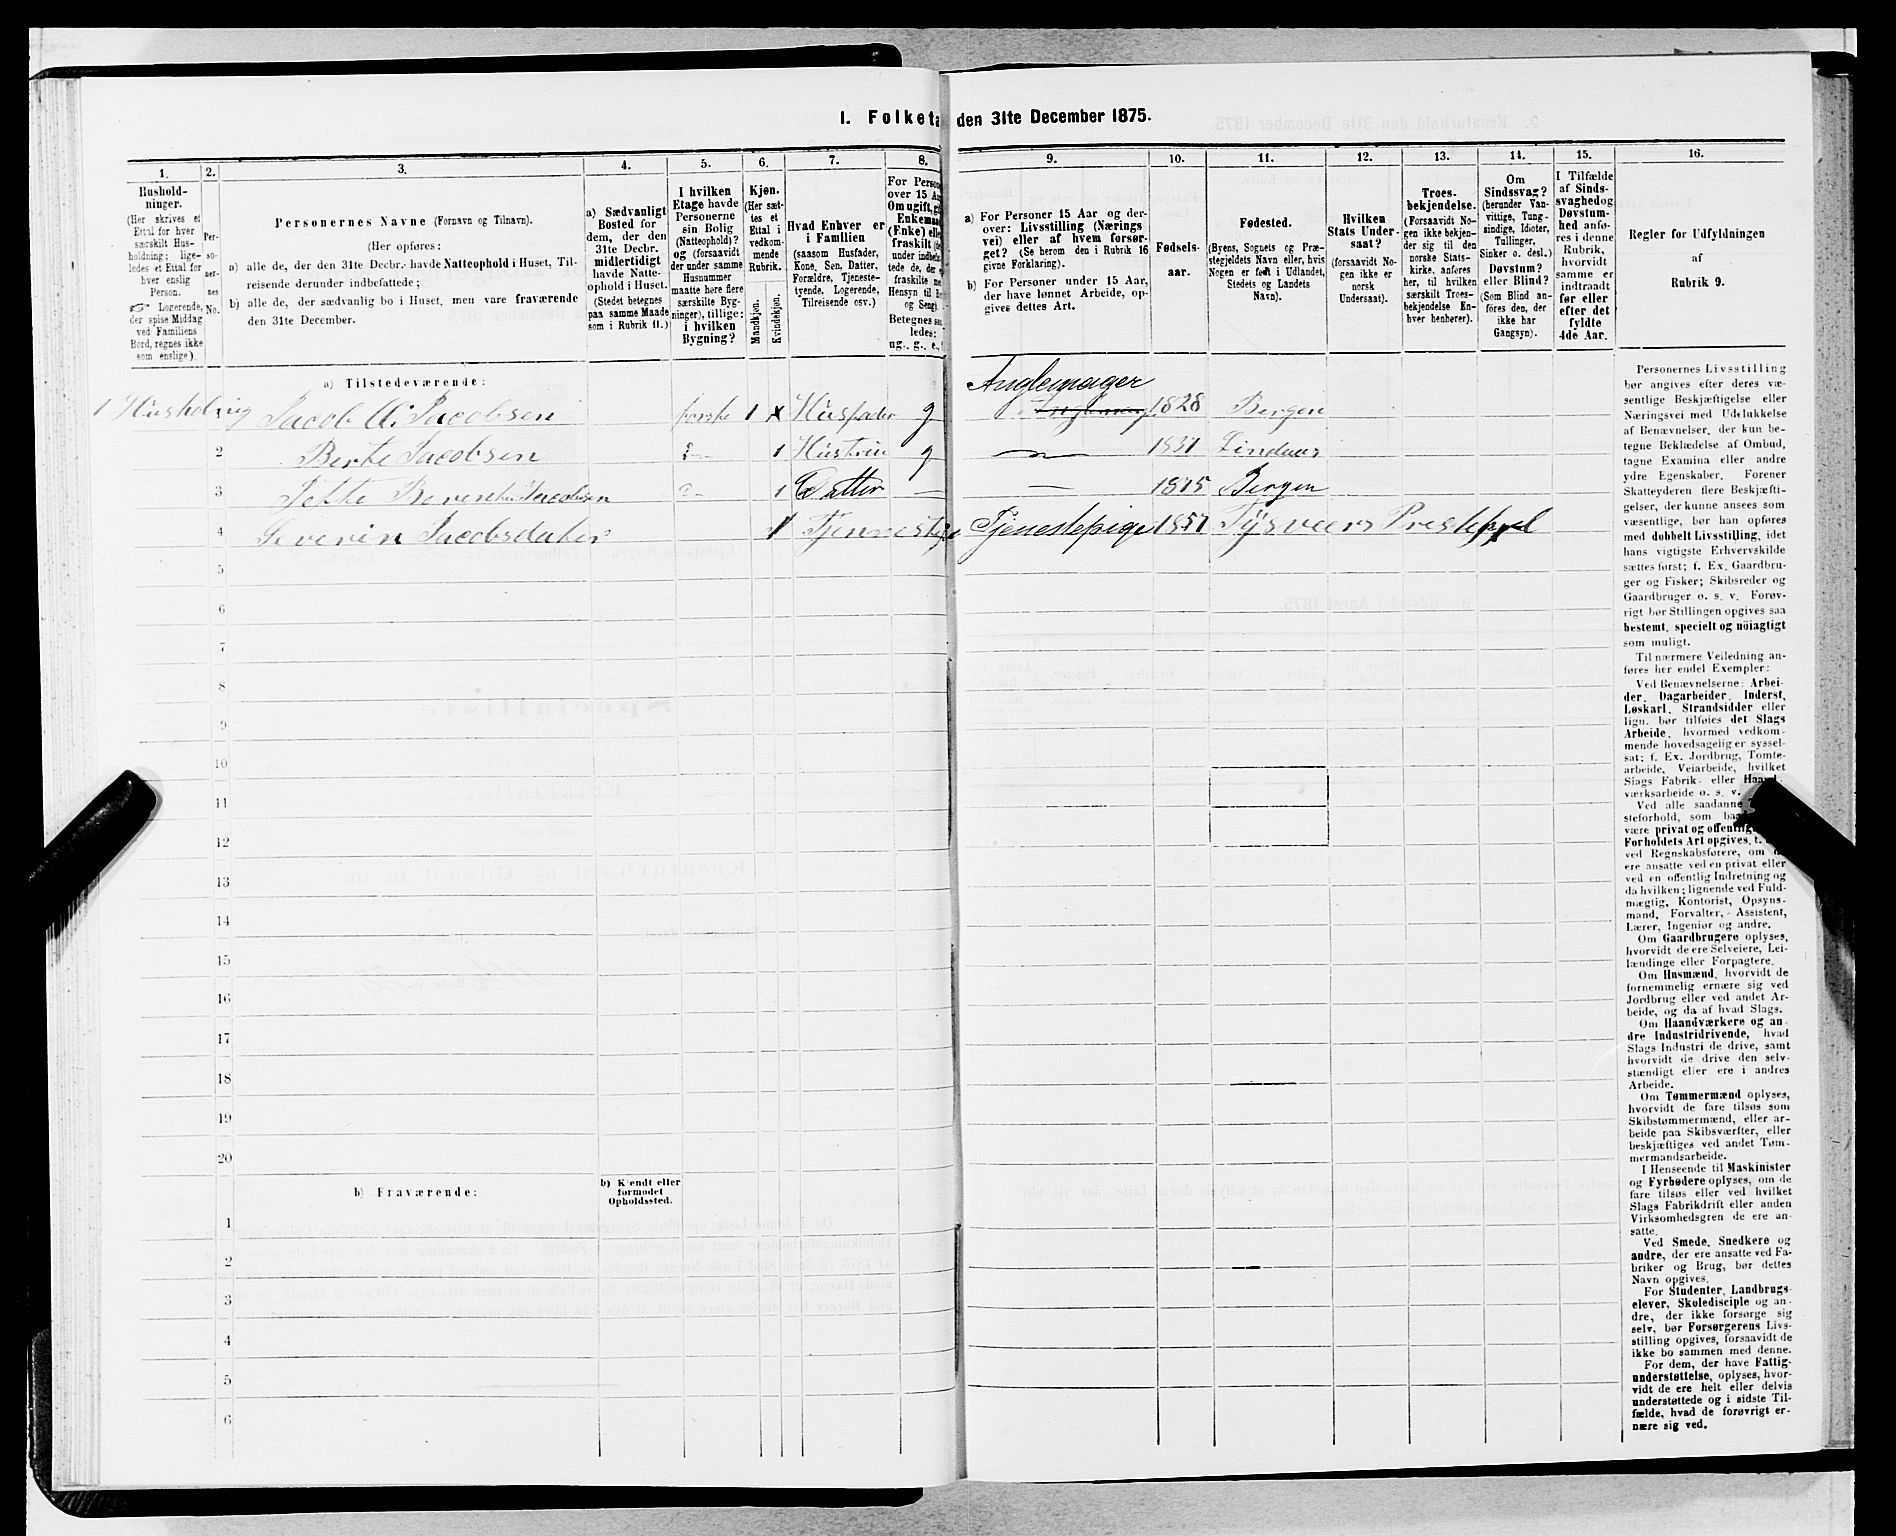 1. Folketa den 31te December 1875.
1. 2. 3. 4. 5. 6. 7. 8. 9. 10. 11. 12. 13. 14. 15. 16.
Hushold-
ninger.
(Her skrives et
Ettal for hver
særskilt Hus-
holdning; lige-
ledes et Ettal for
hver enslig
Person.
Logerende,
der spise Middag
ved Familiens
Bord, regnes ikke
som enslige).
Per-
so-
ner-
nes
No.
Personernes Navne (Fornavn og Tilnavn).
(Her opføres:
a) alle de, der den 31te Decbr. havde Natteophold i Huset, Til-
reisende derunder indbefattede;
b) alle de, der sædvanlig bo i Huset, men vare fraværende
den 31te December.
a) Sædvanligt
Bosted for
dem, der den
31te Decbr.
midlertidigt
havde Natte-
ophold i Huset.
(Stedet betegnes
paa samme Maade
som i Rubrik 11.)
I hvilken
Etage havde
Personerne
sin Bolig
(Natteophold)?
og (forsaavidt
der under samme
Husnummer
maatte høre flere
særskilte Byg-
ninger), tillige:
i hvilken
Bygning?
Kjøn.
(Her sæt-
tes et
Ettal i
vedkom-
mende
Rubrik.
Mandkjøn.
Kvindekjøn.
Hvad Enhver er
i Familien
(saasom Husfader,
Kone, Søn, Datter,
Forældre, Tjeneste-
tyende, Logerende,
Tilreisende osv.)
For Person
over 15 Aa
Om ugift, gi
Enkemand
(Enke) elle
fraskilt (de
under indbefat-
tede de, der e
fraskilte me
Hensyn til B
og Seng).
Betegnes saa
ledes:
ug., g., e.,
a) For Personer 15 Aar og der-
over: Livsstilling (Nærings
vei) eller af hvem forsør-
get? (Se herom den i Rubrik 16
givne Forklaring).
b) For Personer under 15 Aar,
der have lønnet Arbeide, op-
gives dettes Art.
Fødsels-
aar.
Fødested.
(Byens, Sognets og Præ-
stegjeldets Navn eller, hvis
Nogen er født i Udlandet,
Stedets og Landets
Navn).
Hvilken
Stats Under-
saat?
(forsaavidt No-
gen ikke er
norsk
Undersaat).
Troes-
bekjendelse.
(Forsaavidt No-
gen ikke bekjen-
der sig til den
norske Stats-
kirke, anføres
her, til hvilken
særskilt Troes-
bekjendelse En-
hver henhører).
Om
Sindssvag?
(herunder Van-
vittige, Tung-
sindige, Idioter,
Tullinger,
Sinker o. desl.)
Døvstum?
eller Blind?
(Som Blind an-
føres den, der
ikke har
Gangsyn).
I Tilfælde
af Sinds-
svaghed og
Døvstum-
hed anfø-
res i denne
Rubrik,
hvorvidt
samme er
indtraadt
før eller
efter det
fyldte
4de Aar.
Regler for Udfyldningen
af
Rubrik 9.
a) Tilstedeværende:
Anglemager
1 Husholdning Jacob A. Jacobsen første 1 Husfader g 1828 Bergen
2 Berte Jacobsen 1 Hustru g 1837 Lindaas
3 Jacobsen 1 Datter — — 1875 Bergen
4 Severin Jacobsdater 1 Tjenestepige 1857 Tysveers
5
6
7
8
9
10
11
12
13
14
15
16
17
18
19
20
b) Fraværende:
b) Kjendt eller
formodet
Opholdssted.
1
2
3
4
5
6
Personernes Livsstilling
bør angives efter deres væ-
sentlige Beskjæftigelse eller
Næringsvei med Udelukkelse
af Benævnelser, der kun be-
tegne Beklædelse af Ombud,
tagne Examina eller andre
ydre Egenskaber. Forener
Skatteyderen flere Beskjæfti-
gelser, der kunne ansees som
væsentlige, bør han opføres
med dobbelt Livsstilling, idet
hans vigtigste Erhvervskilde
sættes først; f. Ex. Gaardbru-
ger og Fisker; Skibsreder og
Gaardbruger o. s. v. Forøv-
rigt bør Stillingen opgives saa
bestemt, specielt og nöiagtigt
som muligt.
Til nærmere Veiledning an-
føres her endel Exempler:
Ved Benævnelserne: Arbei-
der, Dagarbeider, Inderst,
Løskarl, Strandsidder eller
lign. bør tilføies det Slags
Arbeide, hvormed vedkom-
mende hovedsagelig er syssel-
sat; f. Ex. Jordbrug, Tomte-
arbeide, Veiarbeide, hvilket
Slags Fabrik- eller Haand-
værksarbeide o. s. v.
Ved alle saadanne
steforhold, som
være privat og offentlig
Forholdets Art opgives,
ved Regnskabsførere, om
ere ansatte ved en privat eller
ved en offentlig Indretning og
da hvilken; lignende ved Fuld-
mægtig, Kontorist, Opsyns-
mand, Forvalter, Assistent,
Lærer, Ingeniør og andre.
Om Gaardbrugere oplyses,
hvorvidt de ere Selveiere, Lei-
lændinge eller Forpagtere.
Om Husmænd, hvorvidt de
fornemmelig ernære sig ved
Jordbrug eller ved andet Ar-
beide, og da af hvad Slags.
Om Haandværkere og an-
dre Industridrivende, hvad
Slags Industri de drive, samt
hvorvidt de drive den selv-
stændigt eller ere i andres
Arbeide.
Om Tømmermænd oplyses,
hvorvidt de fare tilsøs som
Skibstømmermænd, eller ar-
beide paa Skibsværfter, eller
beskjæftiges ved andet Tøm-
mermandsarbeide.
I Henseende til Maskinister
og Fyrbødere oplyses, om de
fare tilsøs eller ved hvilket
Slags Fabrikdrift eller anden
Virksomhedsgren de ere an-
satte.
Ved Smede, Snedkere og
andre, der ere ansatte ved Fa-
briker og Brug, bør dettes
Navn opgives.
For Studenter, Landbrugs-
elever, Skoledisciple og an-
dre, der ikke forsørge sig
selv, bør Forsørgerens Livs-
stilling opgives, forsaavidt de
ikke bo sammen med denne.
For dem, der have Fattig-
understøttelse, oplyses, hvor-
vidt de ere helt eller delvis
understøttede og i sidste Til-
fælde, hvad de forøvrigt er-
nære sig ved.